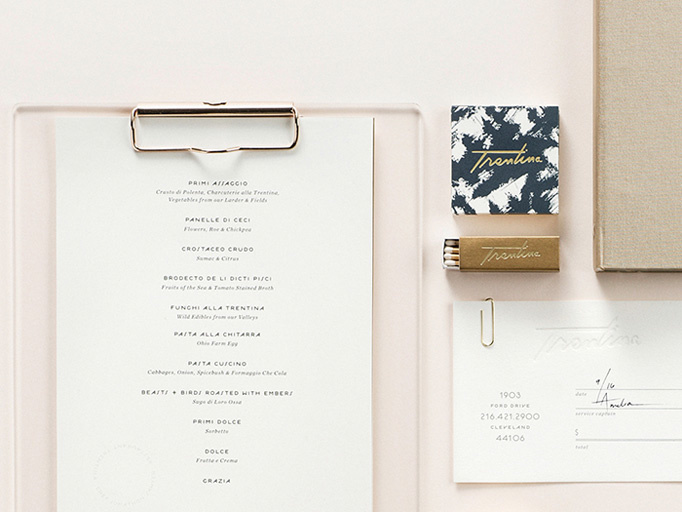 PRIMI ASSAGGIO
Crosto di Polenta, Charcuterie alla Trentina,
Vegetables from our Larder & Fields
PANELLE DI CECI
Flowers, Roe & Chickpea
CROSTACEO CRUDO
Sumac & Citrus
BRODECTO DE LI DICTI PISCI
Fruits of the Sea & Tomato Stained Broth
FUNGHI ALLA TRENTINA
Wild Edibles from our Valleys
PASTA ALLA CHITARRA
Ohio Farm Egg
PASTA CUSCINO
Cabbages, Onion, Spicebush & Formaggio Che Cola
BEASTS + BIRDS ROASTED WITH EMBERS
Sugo di Loro Ossa
PRIMI DOLCE
Sorbetto
DOLCE
Frutta e Crema
GRAZIA
Trentina
Trentina
Trentina
1903
FORD DRIVE
216.421.2900
CLEVELAND
44106
9/16
date
Amelia
service capture
$
total